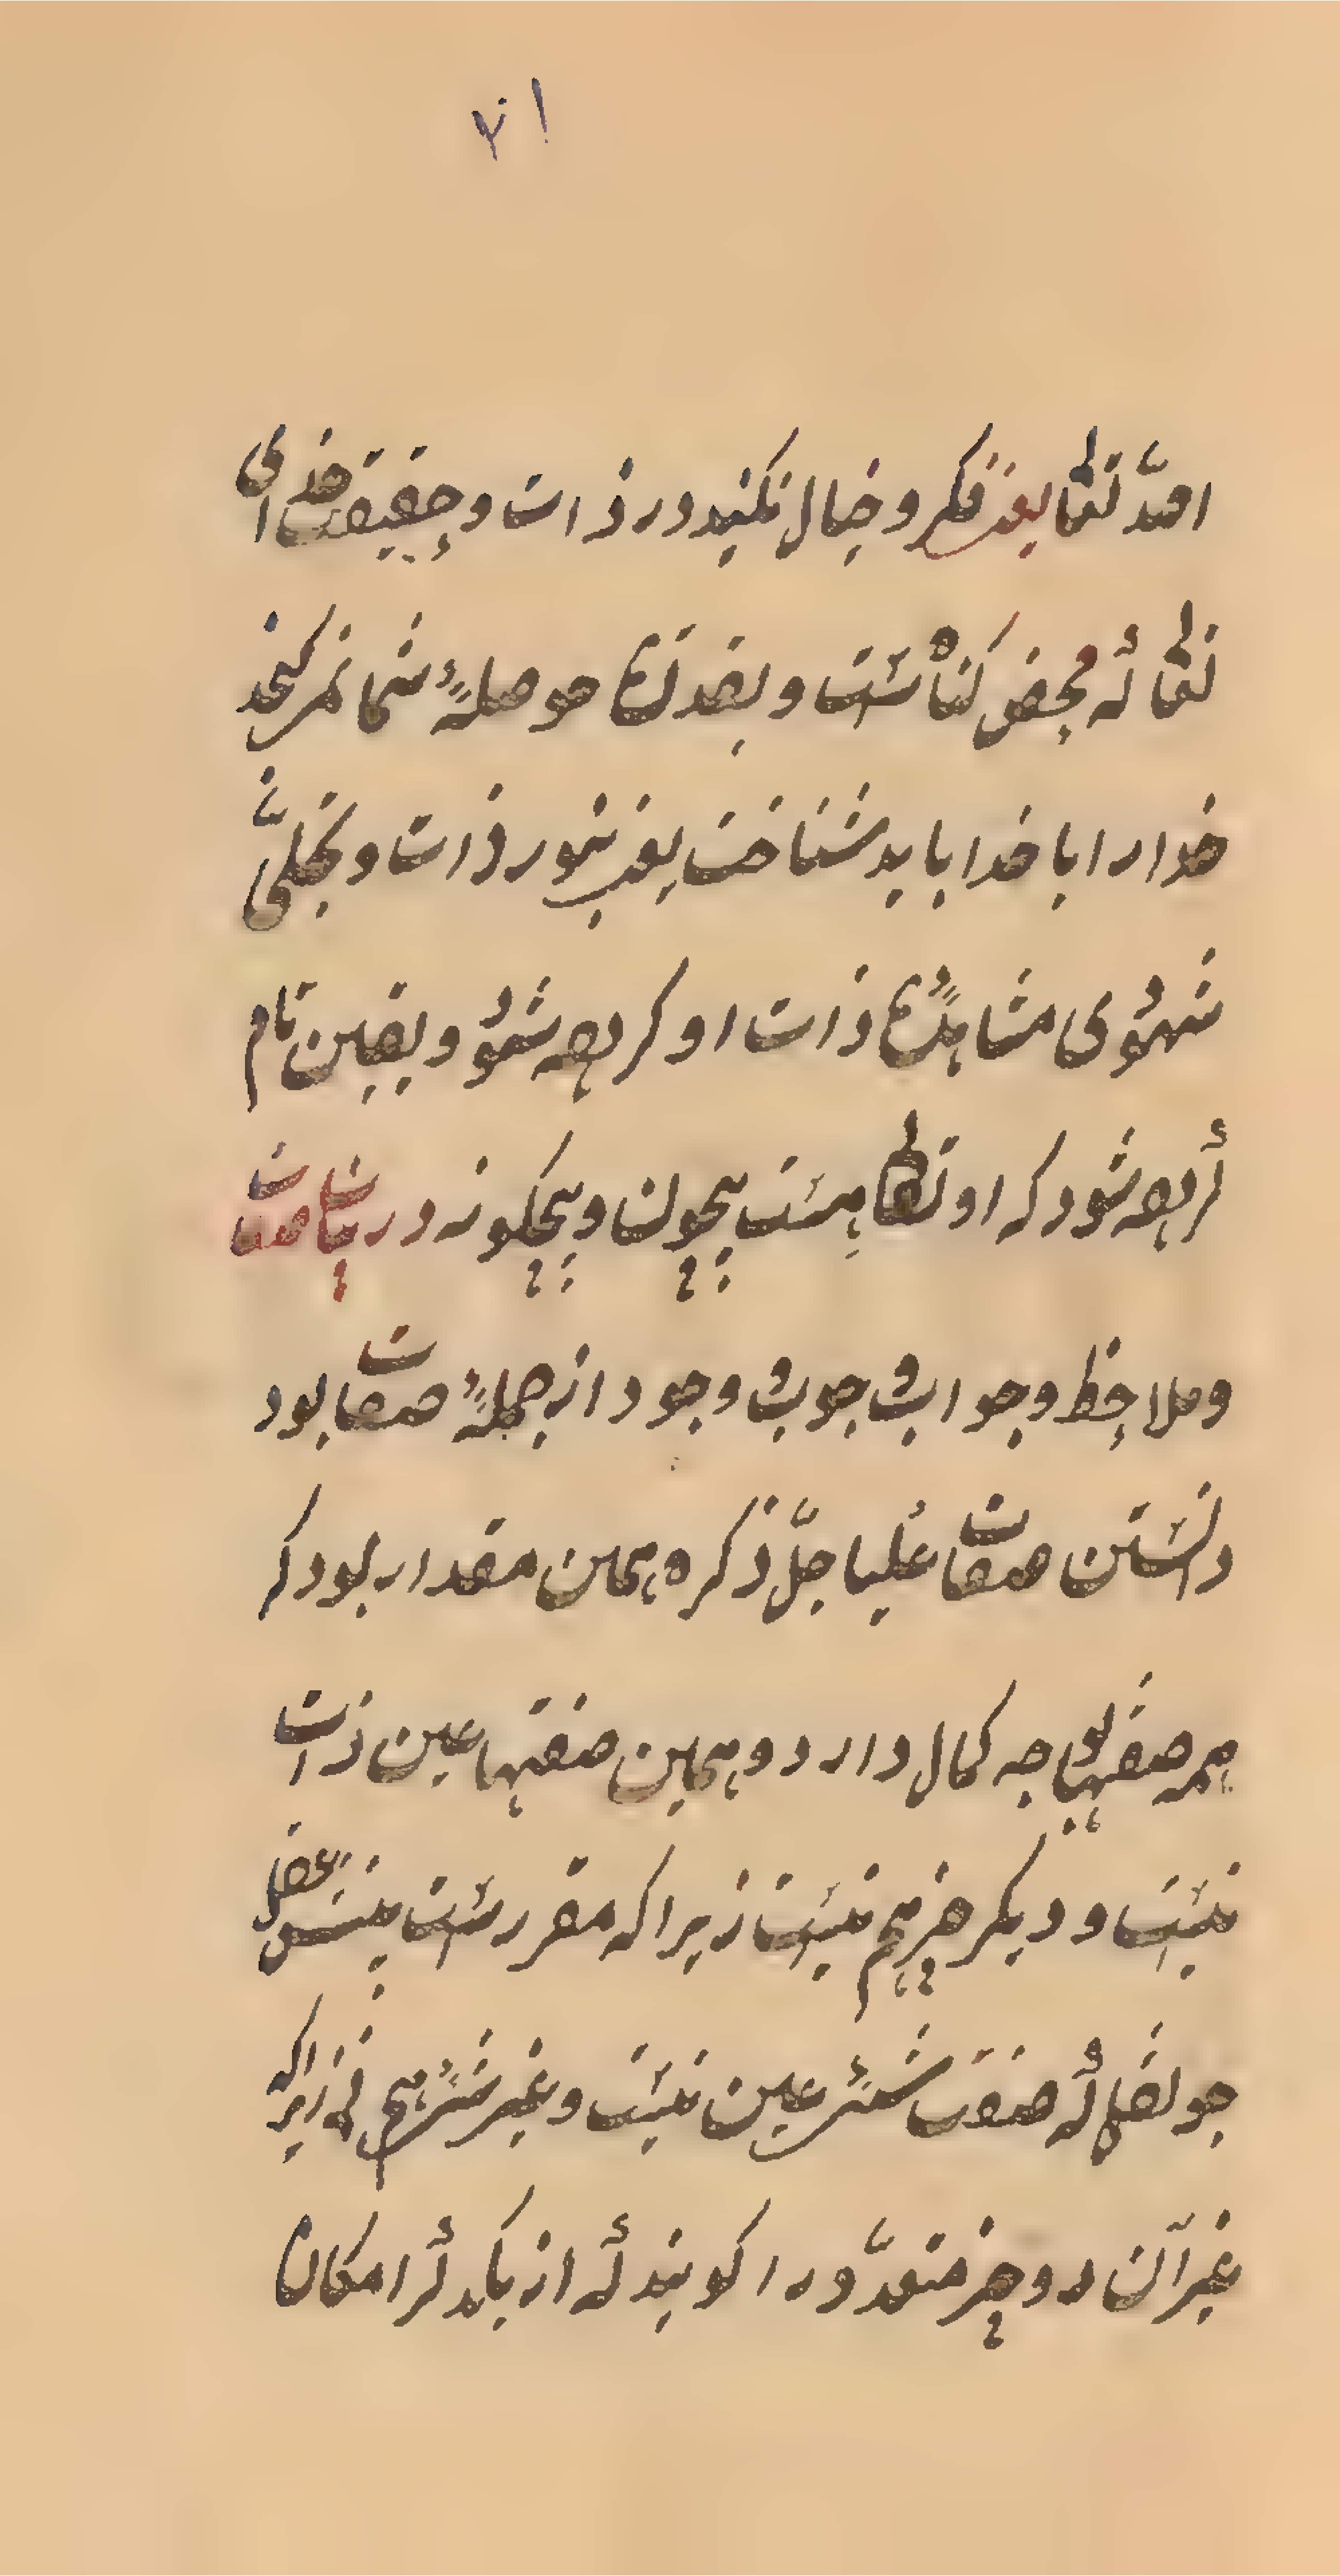 ۱۲
الله تعالی یعنی فکر و خیال نکنید در ذات و حقیقت خدای
تعالی که محض گناه است و بقدر حوصلهٔ شما نمی گنجد
خدا را با خدا باید شناخت یعنی بنور ذات و تجلّی
شهودی مشاهدهٔ ذات او کرده شود و یقین تام
آورده شود که او تعالی هست بیچون و بیچگونه در
و ملاحظ وجوب وجود از جملهٔ صفات بود
دانستن صفات علیا جلّ ذکره همین مقدار بود که
همه صفتهای به کمال دارد و همین صفتها عین ذات
نیست و دیگر چیز هم نیست زیرا که مقرر است
که صفت شیٔ عین نیست و غیر شیٔ هم نی زیرا که
غیر آن دو چیز متعدّد را گویند که از یکدیگر امکان